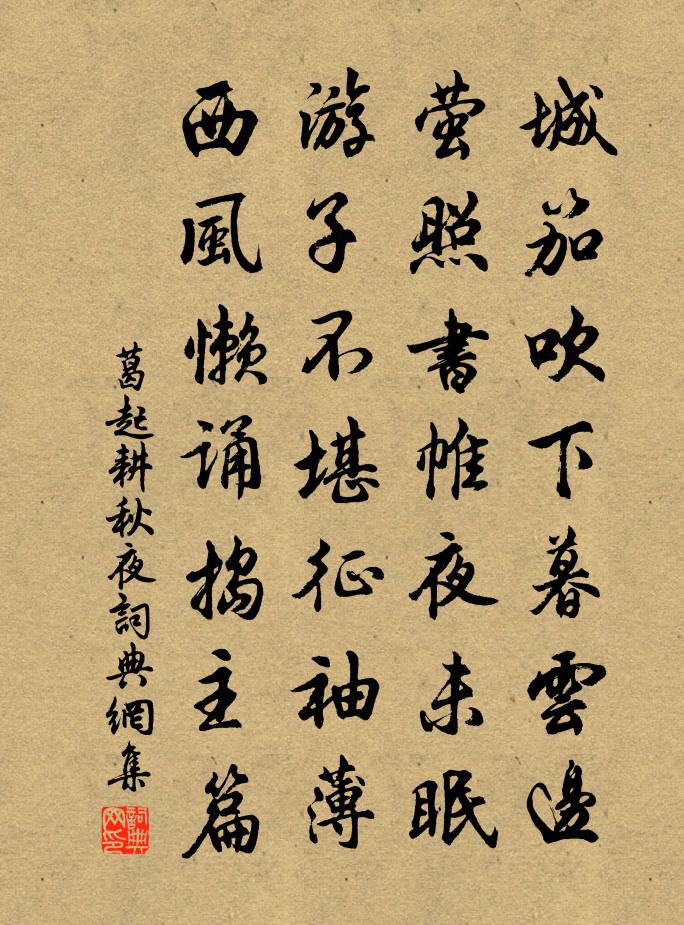 城笳吹下暮雲邊
萤照書帷夜未眠
游子不堪征袖薄
西風懒诵捣主篇
葛起耕秋夜詞典網集
詞典网印